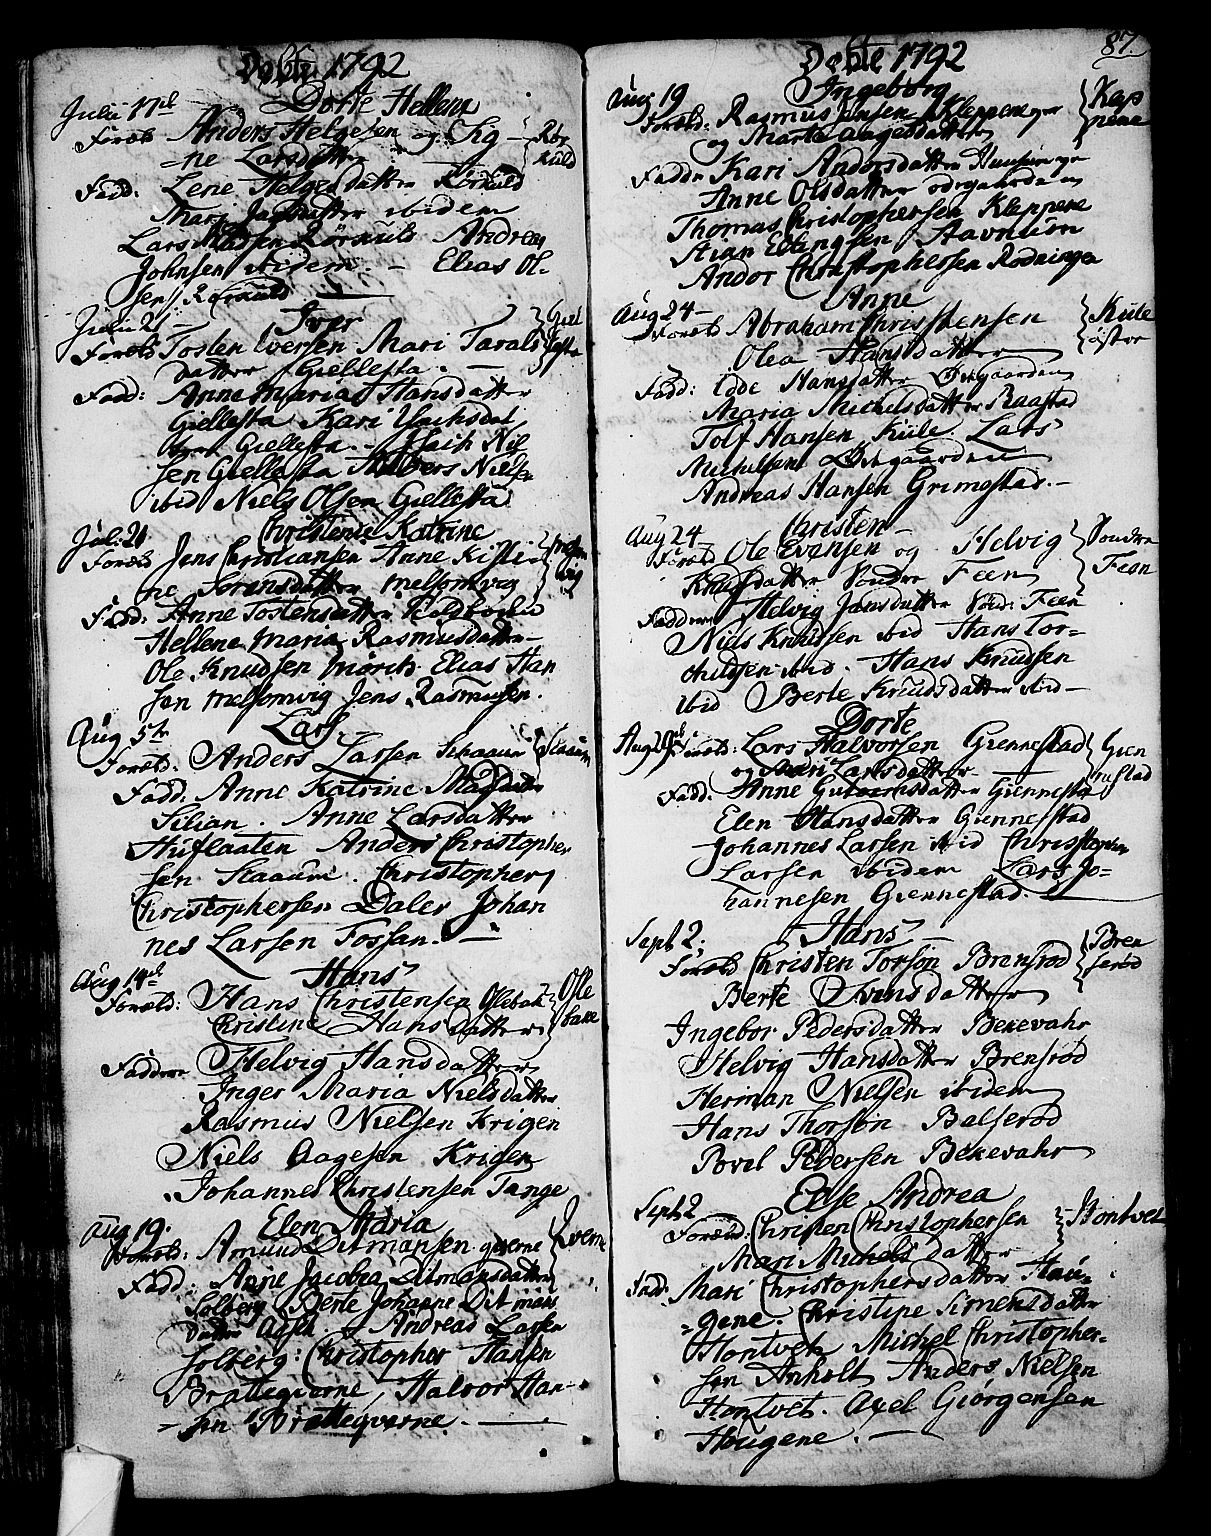 Døbte 1792
Julii 17de Dorte Hellena
Foræld: Anders Helgesen og Sig-
=ne Larsdatter
Fadd: Lene Helgesdatter Rørkuld
Mari Jacobsdatter ibidem
Lars Madsen Rørkuld Andreas
Johnsen ibidem. - Elias Ol-
sen Rørkuld
Julii 21 - Iver
Foræld: Tosten Iversen Mari Tarals
datter Giellesta. -
Fadd: Anne Maria Hansdatter
Giellesta Kari Isachsdat
ter Giellesta. - Isach Niel
sen Giellesta Niels Nielsen
ibid Niels Olsen Giellesta
Juli 21 Christense Katrine
Foræld Jens Christiansen Anne Kisti
ne Sørensdatter Melsomvig
Fadd: Anne Tostensdatter
Hellene Maria Rasmusdatter-
Ole Knudsen Mørich Elias Han
sen Melsomvig Jens Rasmusen.
Aug 5te Lars.
Foræld. Anders Larsen Schaaum Scaaum
Fadd. Anne Katrine Madsdatter
Silian. Anne Larsdatter
Huflaaten Anders Christopher
sen Scaaum. Christopher
Christophersen Daler Johan
nes Larsen Fossan. -
Aug 14de Hans
Foræld: Hans Christensen Olebak Ole
Christine Hansdatter bake
Faddere Helvig Hansdatter
Inger Maria Nielsdatter
Rasmus Nielsen Krigen
Niels Aagesen Krigen
Johannes Christensen Tange
Aug 19. Elen Maria
Foræld: Amund Ditmansen qverne Qverne
Fadd: Anne Jacobea Ditmansdatter
Solberg Berte Johanne Ditmans
datter Andreas Larsen
Solberg: Christopher Hansen
Bratteqverne, Halvor Han-
=sen Bratteqverne. -
87.
Døbte 1792
Aug 19 Ingeborg
Foræld: Rasmus Jensen Kleppene Kap
og Marte Aagesdatter pene
Faddr Kari Andersdatter
Anne Olsdatter Ødegaarden
Thomas Christophersen Kleppene
Stian Ellingsen Stavnum
Andor Christophersen Rødningen
Aug 24- Anne
Foræld Abraham Christensen Kiile
Olea Hansdatter øster
Fadd: Edde Hansdatter Ødegaarden
Maria Michelsdatter Raastad
Tolf Hansen Kiile Lars
Michelsen Ødegaarden
Andreas Hansen Grimestad. -
Aug 24 Christen -
Foræld Ole Evensen og Helvig Søndre
Knudsdatter Søndre Feen Feen
Faddere Helvig Jansdatter Sønd: Feen
Niels Knudsen ibid Hans Tor-
childsen ibid. Hans Knudsen
ibid Berte Knudsdatter ibid-
Dorte
Foræld: Lars Halvorsen Giennestad Gien
og Mari Larsdatter - nestad
Fadd: Anne Gulbransdatter Giennesta
Elen Hansdatter Giennestad
Johannes Larsen ibid Christopher
Larsen ibidem Lars Jo-
hannesen Giennestad.
Sept 2. Hans -
Foræld Christen Torsøn Brensrød Bren
Berte Svensdatter serød
Ingebor Pedersdatter Bekevahr
Helvig Hansdatter Brensrød
Herman Nielsen ibidem
Hans Thorsøn Balserød
Povel Pedersen Bekevahr
Sept 2 Else Andrea
Foræld: Christen Christophersen Hontvet
Mari Michelsdatter
Fadr: Mari Christophersdatter Hau-
=gene. Christine Simensdatter
Hontvet Michel Christopher-
sen Anholt Anders Nielsen
Hontvet. Axel Giørgensen
Hougene. -